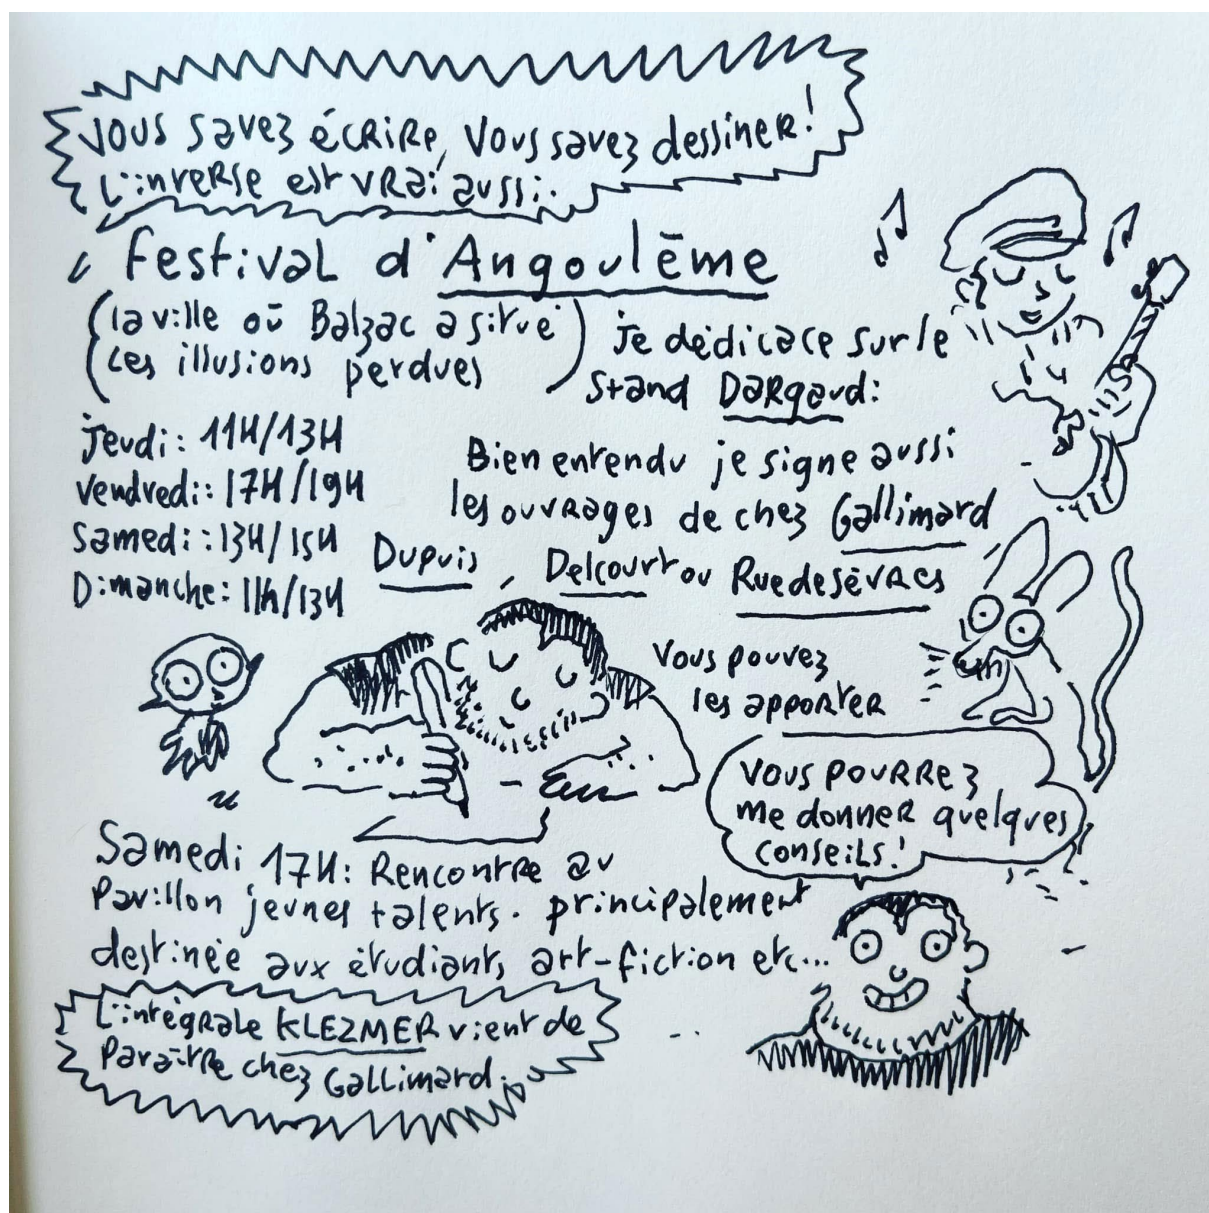 Vous savez écrire, Vous savez dessiner!
L'inverse est vrai aussi.
Festival d'Angoulême
(la ville où Balzac a situé
Les illusions perdues)
je dédicace sur le
stand Dargaud:
jeudi: 11H/13H
Vendredi: 17H/19H
Samedi: 13H/15H
Dimanche: 11h/13H
Bien entendu je signe aussi
les ouvrages de chez Gallimard
Dupuis, Delcourt ou Rue de Sèvres
Vous pouvez
les apporter
Vous pourrez
me donner quelques
conseils!
Samedi 17H: Rencontre au
Pavillon jeunes talents. principalement
destinée aux étudiants, art-fiction etc...
L'intégrale KLEZMER vient de
Paraître chez Gallimard.